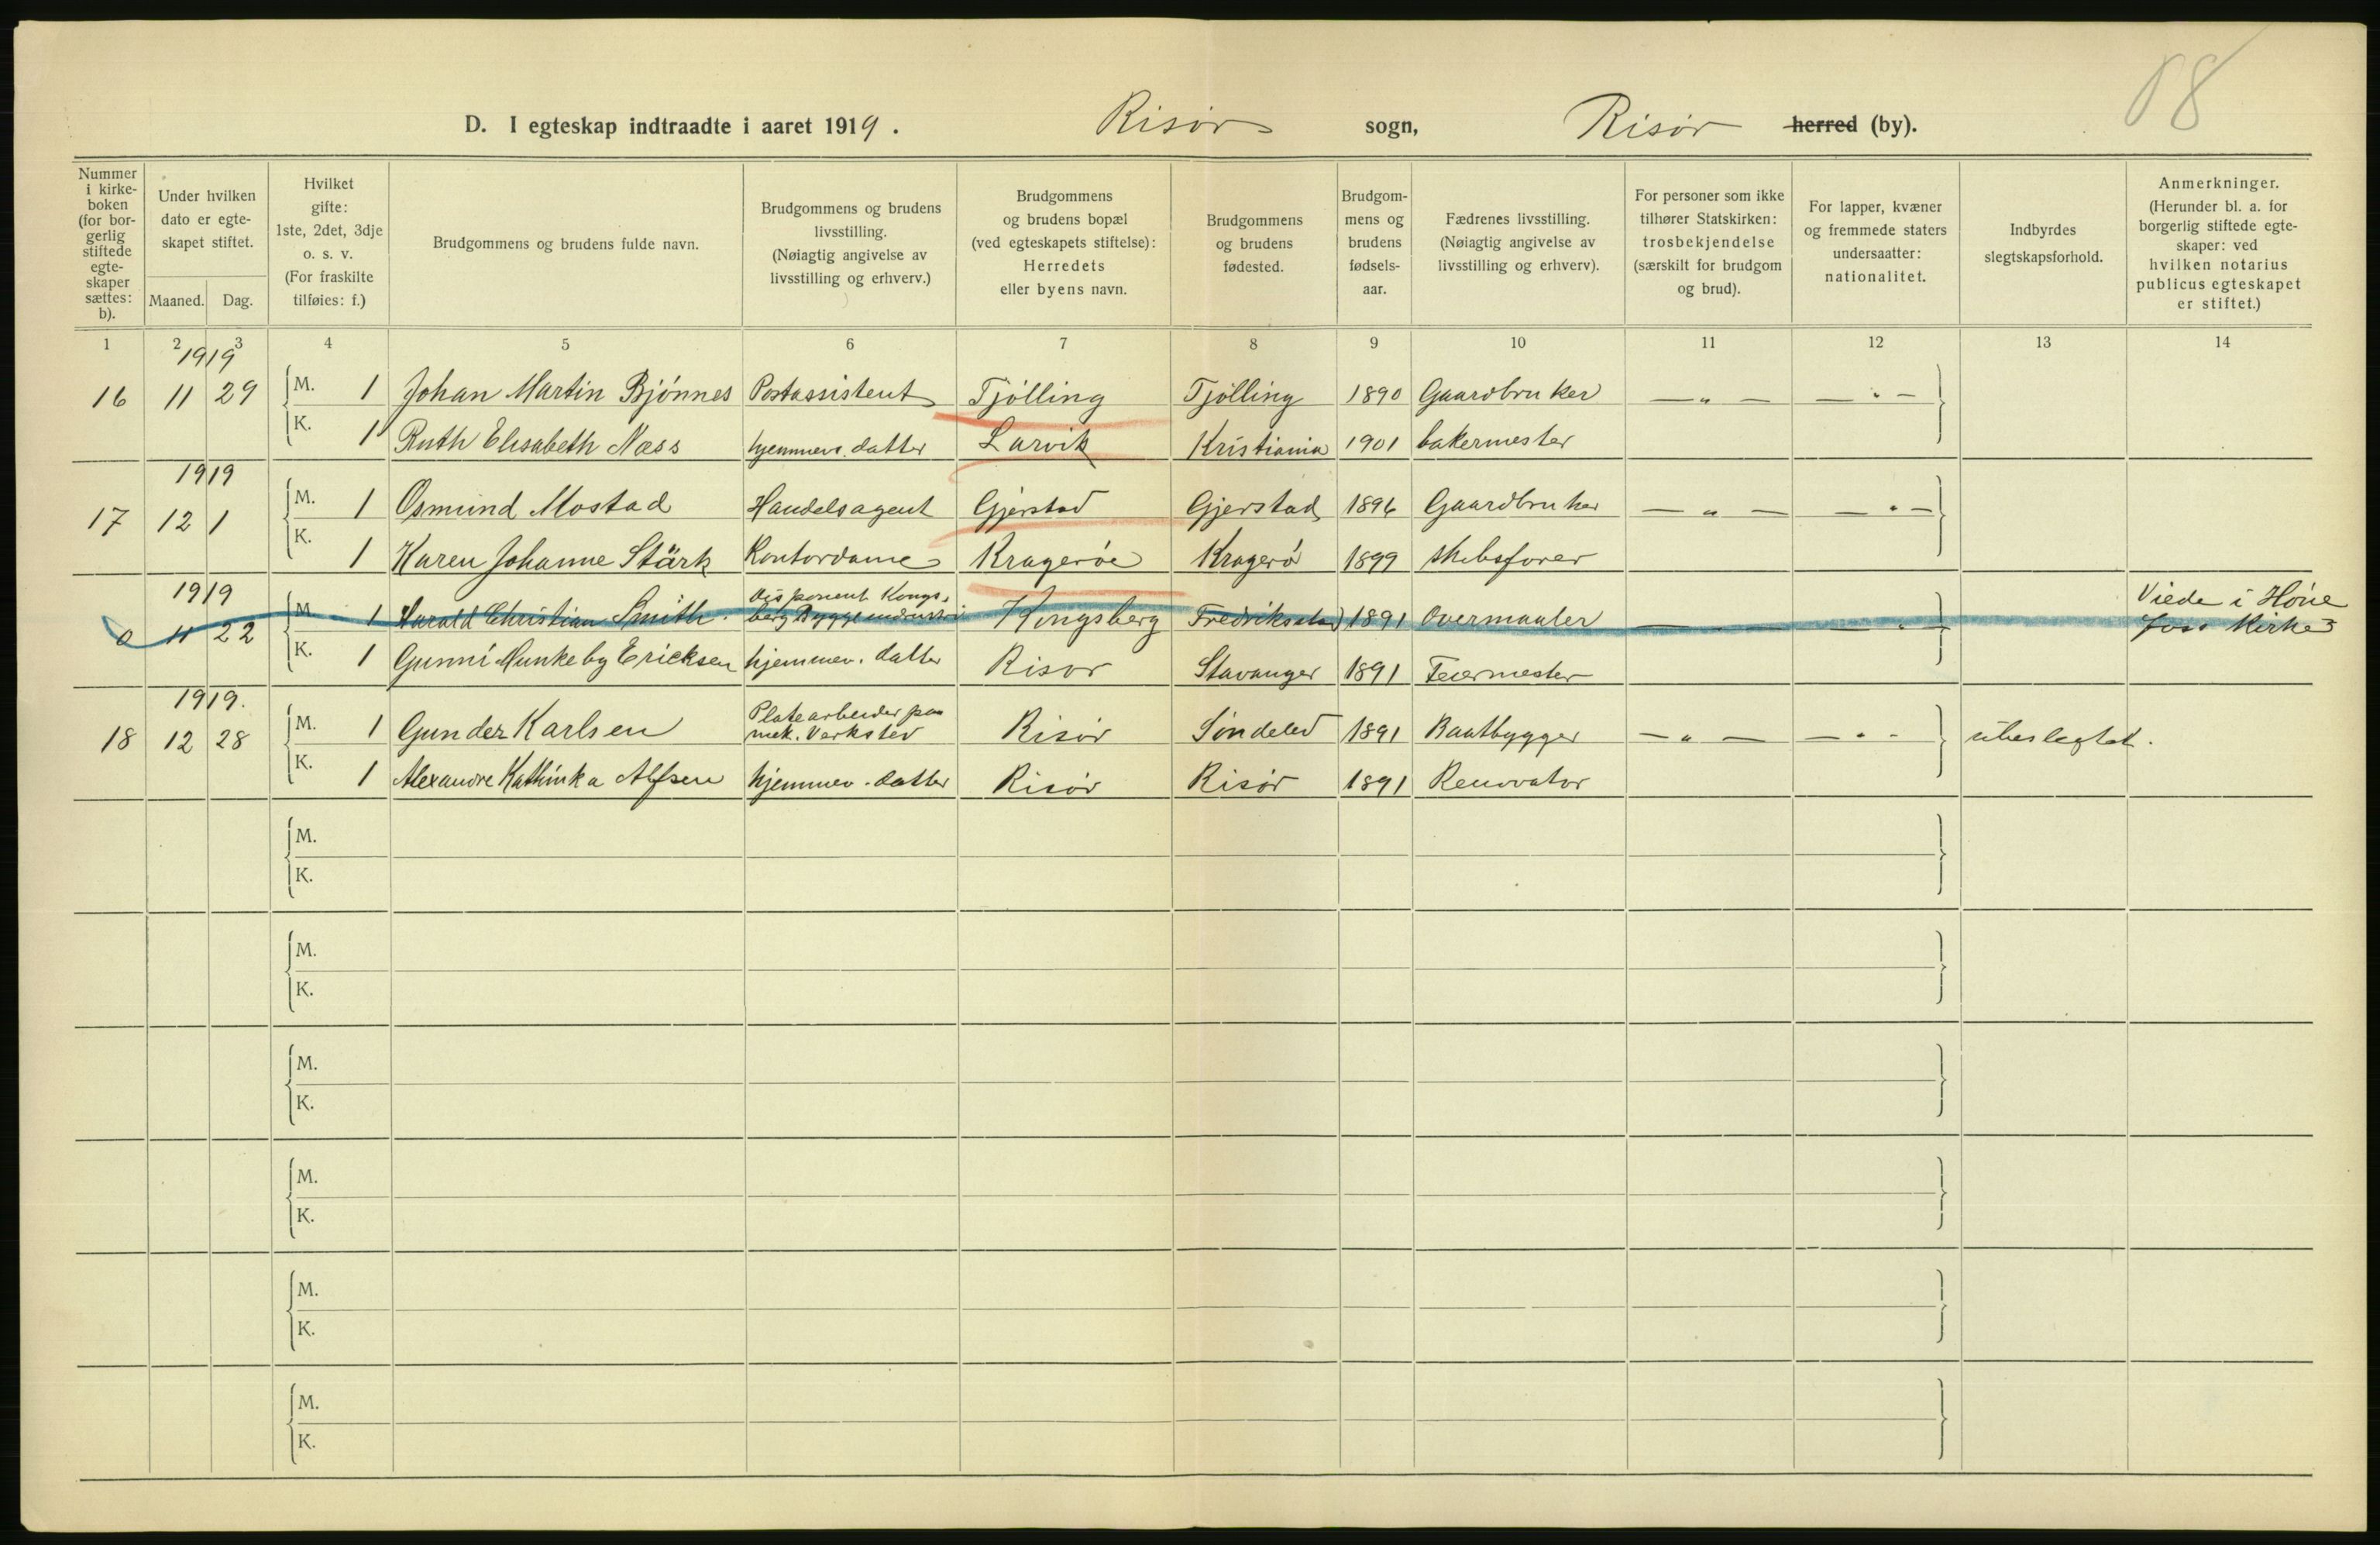 08
D. I egteskap indtraadte i aaret 1919. Risør sogn, Risør herred (by).
Nummer i kirke-boken (for bor-gerlig stiftede egte-skaper sættes: b).
Under hvilken dato er egte-skapet stiftet.
Maaned. Dag.
Hvilket gifte: 1ste, 2det, 3dje o. s. v. (For fraskilte tilføies: f.)
Brudgommens og brudens fulde navn.
Brudgommens og brudens livsstilling. (Nøiagtig angivelse av livsstilling og erhverv.)
Brudgommens og brudens bopæl (ved egteskapets stiftelse): Herredets eller byens navn.
Brudgommens og brudens fødested.
Brudgom-mens og brudens fødsels-aar.
Fædrenes livsstilling. (Nøiagtig angivelse av livsstilling og erhverv).
For personer som ikke tilhører Statskirken: trosbekjendelse (særskilt for brudgom og brud).
For lapper, kvæner og fremmede staters undersaatter: nationalitet.
Indbyrdes slegtskapsforhold.
Anmerkninger. (Herunder bl. a. for borgerlig stiftede egte-skaper: ved hvilken notarius publicus egteskapet er stiftet.)
1 2 3 4 5 6 7 8 9 10 11 12 13 14
1919
16 11 29 M. 1 Johan Martin Bjønnes Postassistent Tjølling Tjølling 1890 Gaardbruker — " — — " —
K. 1 Ruth Elisabeth Næss hjemmev. datter Larvik Kristiania 1901 bakermester
1919
17 12 1 M. 1 Osmund Mostad Handelsagent Gjerstad Gjerstad 1896 Gaardbruker — " — — " —
K. 1 Karen Johanne Stärk Kontordame Kragerøe Kragerø 1899 skibsfører
1919
Disponent Kongs-
0 11 22 M. 1 Harald Christian Smith. berg Byggeindustri Kongsberg Fredrikstad 1891 Overmaaler — — " — Viede i
Kirke
K. 1 Gunni Munkeby Ericksen hjemmev. datter Risør Stavanger 1891 Feiermester
1919.
Platearbeider paa
18 12 28 M. 1 Gunder Karlsen mek. Verksted Risør Søndeled 1891 Baatbygger — " — — " — ubeslegtet.
K. 1 Alexandre Kathinka Alfsen hjemmev. datter Risør Risør 1891 Renovatør
M.
K.
M.
K.
M.
K.
M.
K.
M.
K.
M.
K.